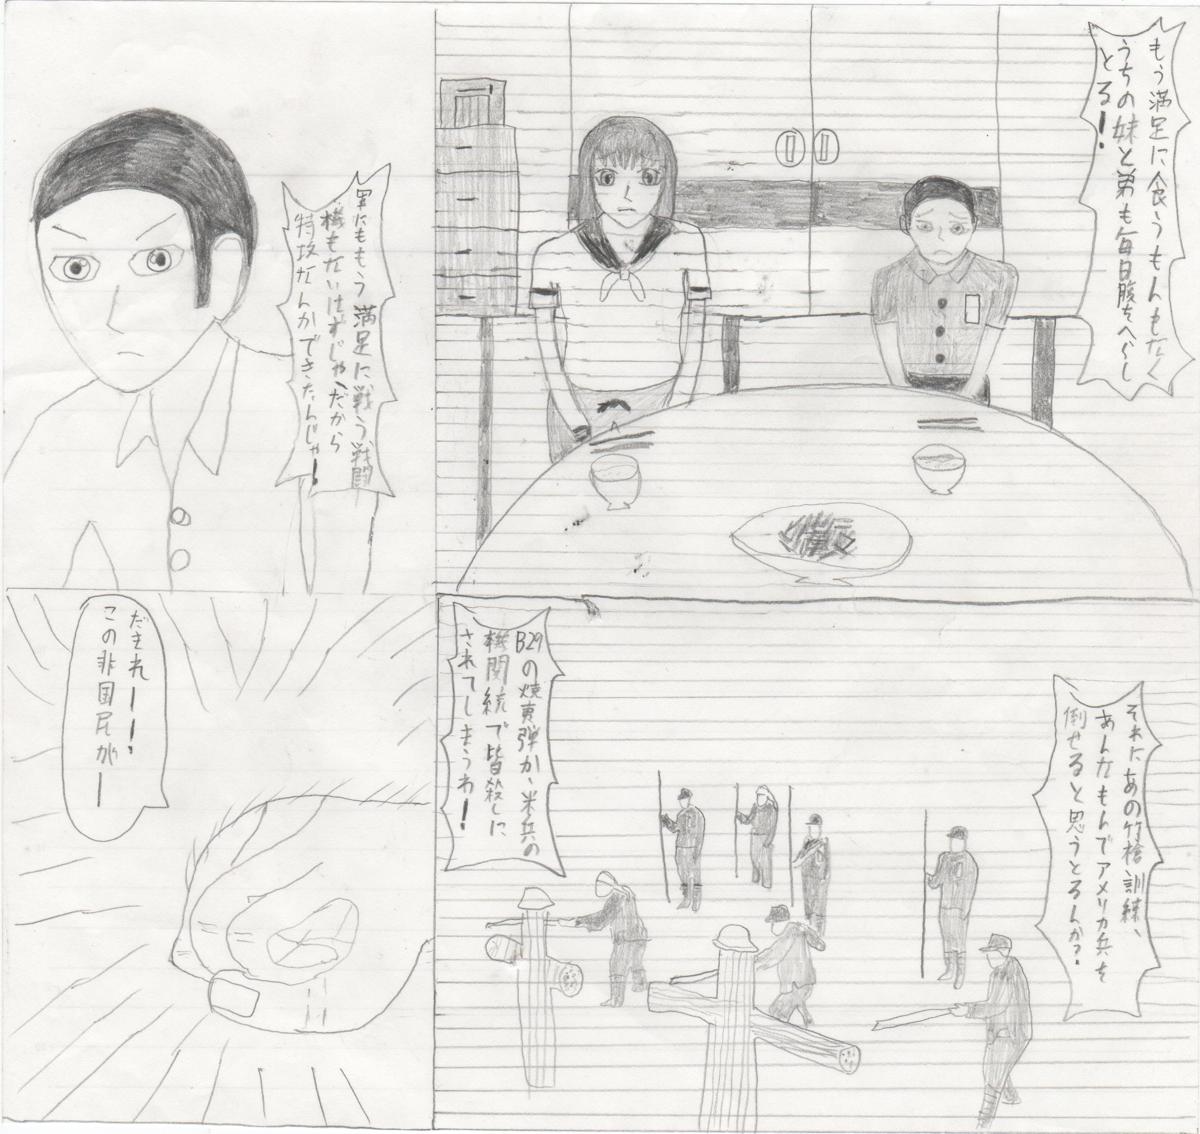 もう満足に食うもんもなく
うちの妹と弟も毎日腹をへらし
とる!
軍にももう満足に戦う戦闘
機もないはずじゃ、だから
特攻なんかできたんじゃ!
それにあの竹槍訓練、
あんなもんでアメリカ兵を
倒せると思うとるんか?
B29の焼夷弾か、米兵の
機関銃で皆殺しに
されてしまうわ!
だまれー!
この非国民がー